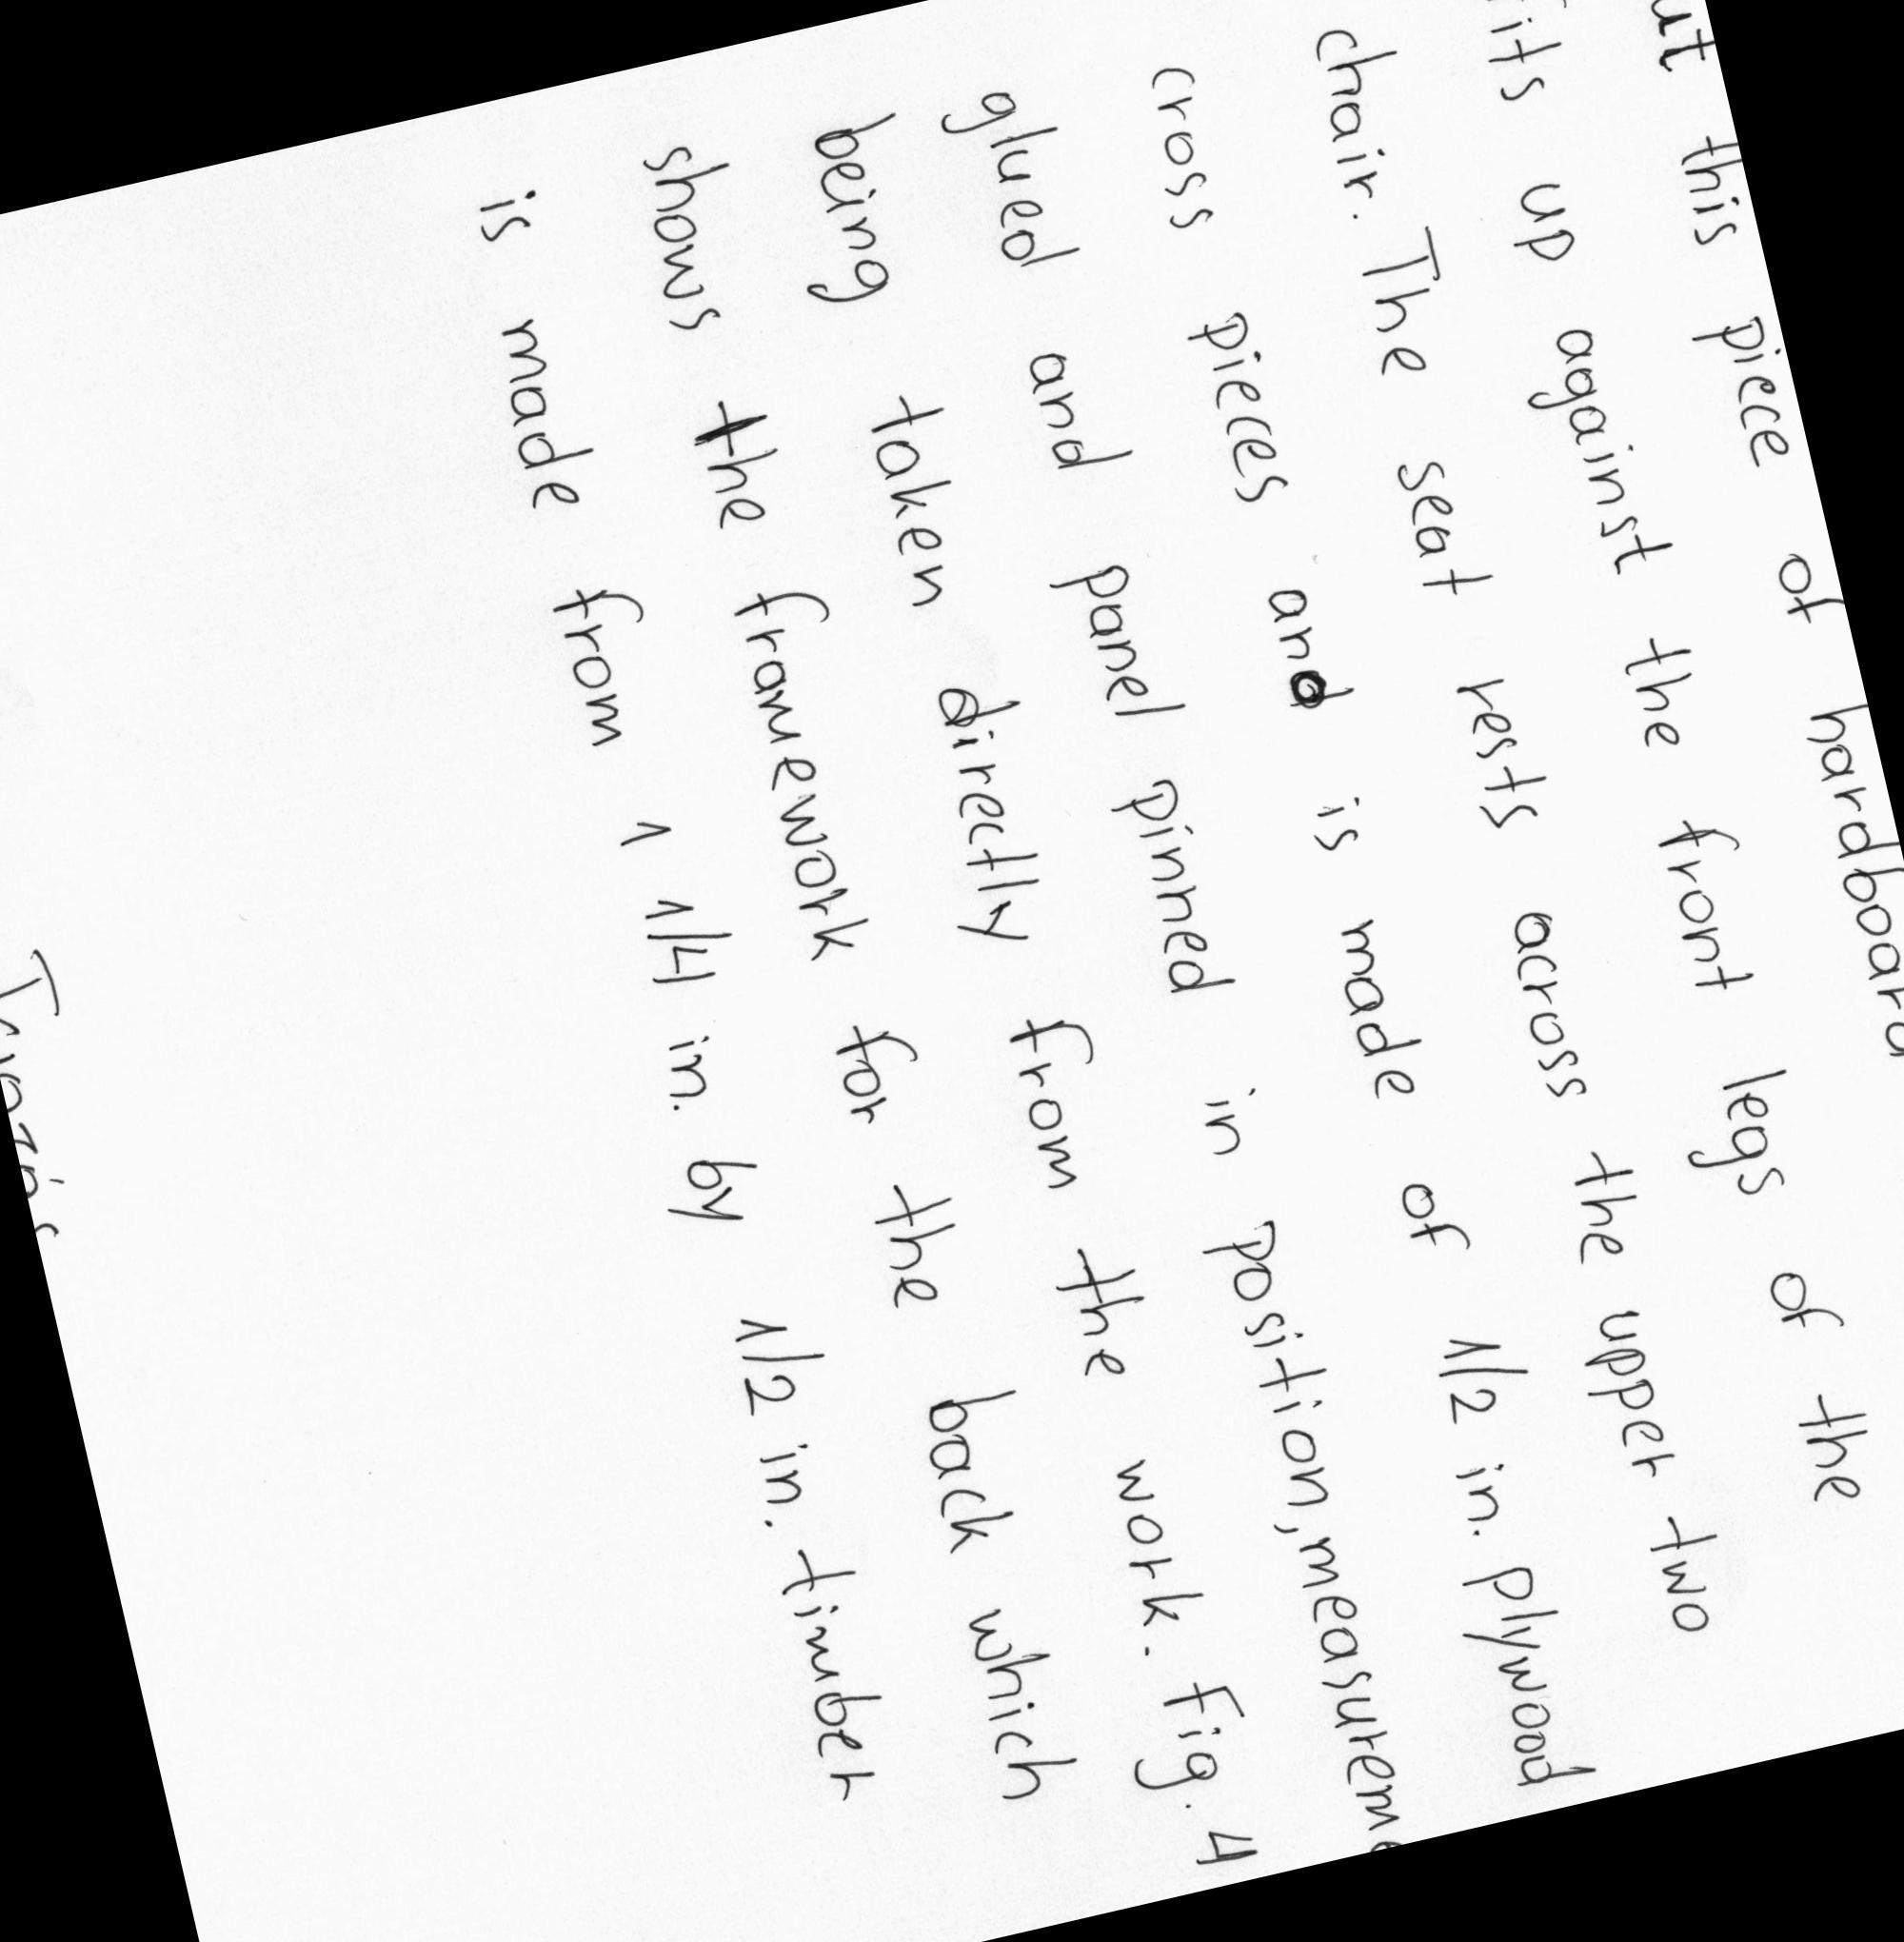 this piece of
up against the front legs of the
chair. The seat rests across the upper two
cross pieces and is made of 1/2 in. plywood
glued and panel pinned in position,
being taken directly from the work. Fig. 4
shows the framework for the back which
is made from 1 1/4 in. by 1/2 in. timber